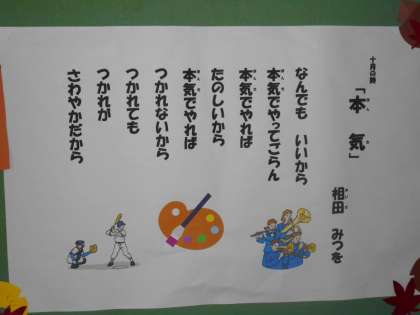 十月の詩
「本　気」
相田　みつを
なんでも　いいから
本気でやってごらん
本気でやれば
たのしいから
本気でやれば
つかれないから
つかれても
つかれが
さわやかだから